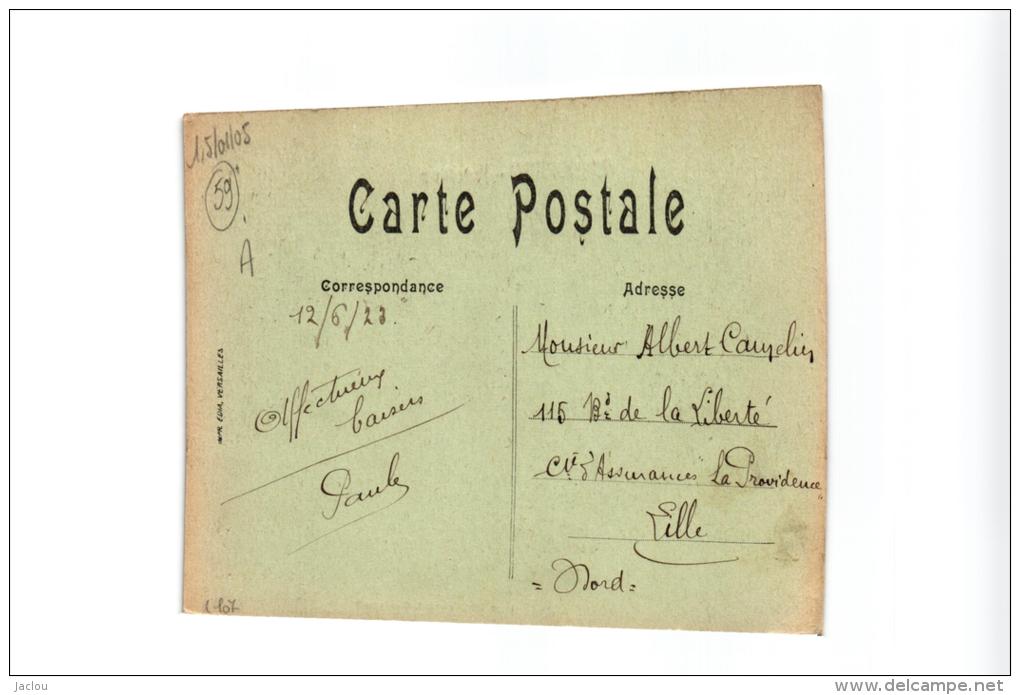 1,5/01/05
59
A
Carte Postale
Correspondance
12/6/23.
Affectueux
baisers
Paule
Adresse
Monsieur Albert
115 Bd de la Liberté
Cie d'Assurances "La Providence"
Lille
= Nord =
IMP. EDIA, VERSAILLES
Jaclou
www.delcampe.net